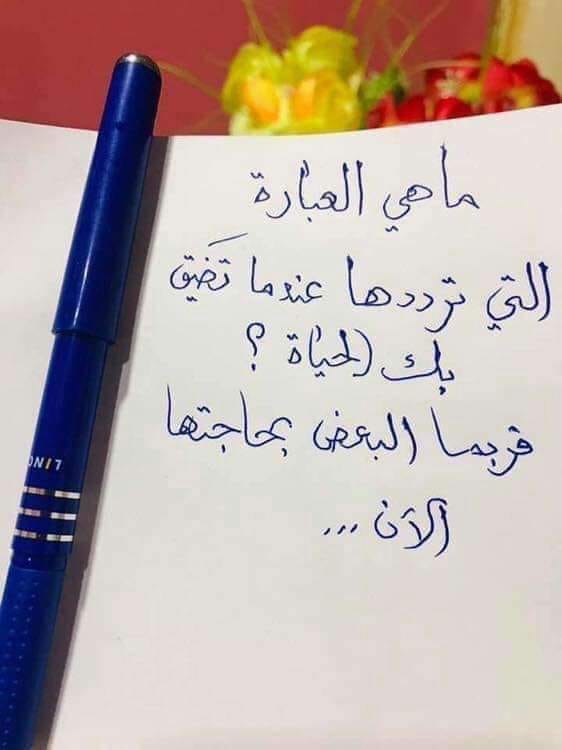 ما هي العبارة
التي ترددها عندما تَضيق
بك الحياة ؟
فربما البعض بحاجتها
الآن ...
LINC